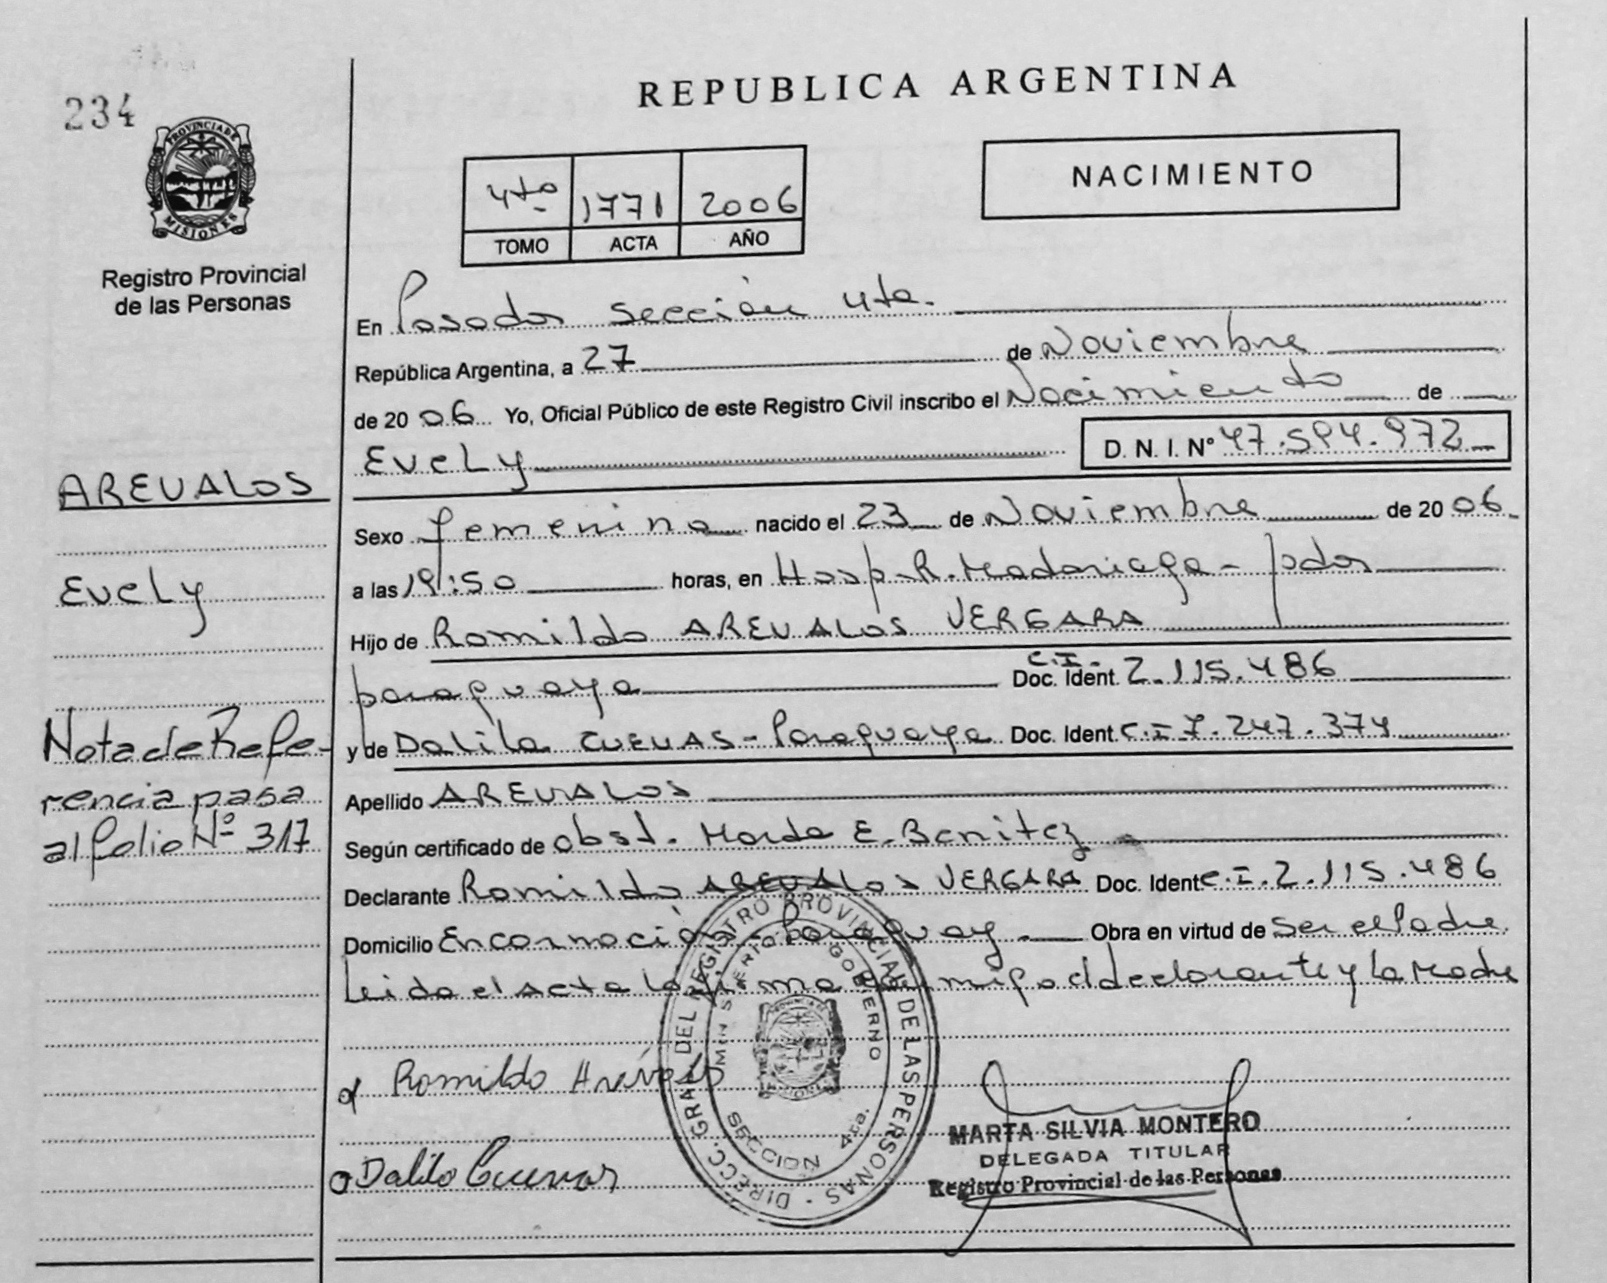 234
REPUBLICA ARGENTINA
PROVINCIA DE MISIONES
Registro Provincial
de las Personas
4to 1771 2006
TOMO ACTA AÑO
NACIMIENTO
En Posadas sección 4ta.
República Argentina, a 27 de Noviembre
de 2006 Yo, Oficial Público de este Registro Civil inscribo el Nacimiento de
Evely D. N. I. Nº 47.594.972
AREVALOS
Evely
Nota de Refe-
rencia pasa
al folio Nº 317
Sexo femenino nacido el 23 de Noviembre de 2006.
a las 19:50 horas, en Hosp. R. Madariaga - pdas
Hijo de Romildo AREVALOS VERGARA
paraguaya C.I. Doc. Ident. 2.115.486
y de Dalila CUEVAS - Paraguaya Doc. Ident. C.I 7.247.374
Apellido AREVALOS
Según certificado de obst. E. Benitez
Declarante Romildo AREVALOS VERGARA Doc. Ident C.I. 2.115.486
Domicilio Encarnación Paraguay. Obra en virtud de Ser el Padre
Leida el acta la firma conmigo el declarante y la Madre
Romildo Arévalo
Dalila Cuevas
DIRECC. GRAL. DEL REGISTRO PROVINCIAL DE LAS PERSONAS
MINISTERIO GOBIERNO
SECCION 4ta.
MARTA SILVIA MONTERO
DELEGADA TITULAR
Registro Provincial de las Personas